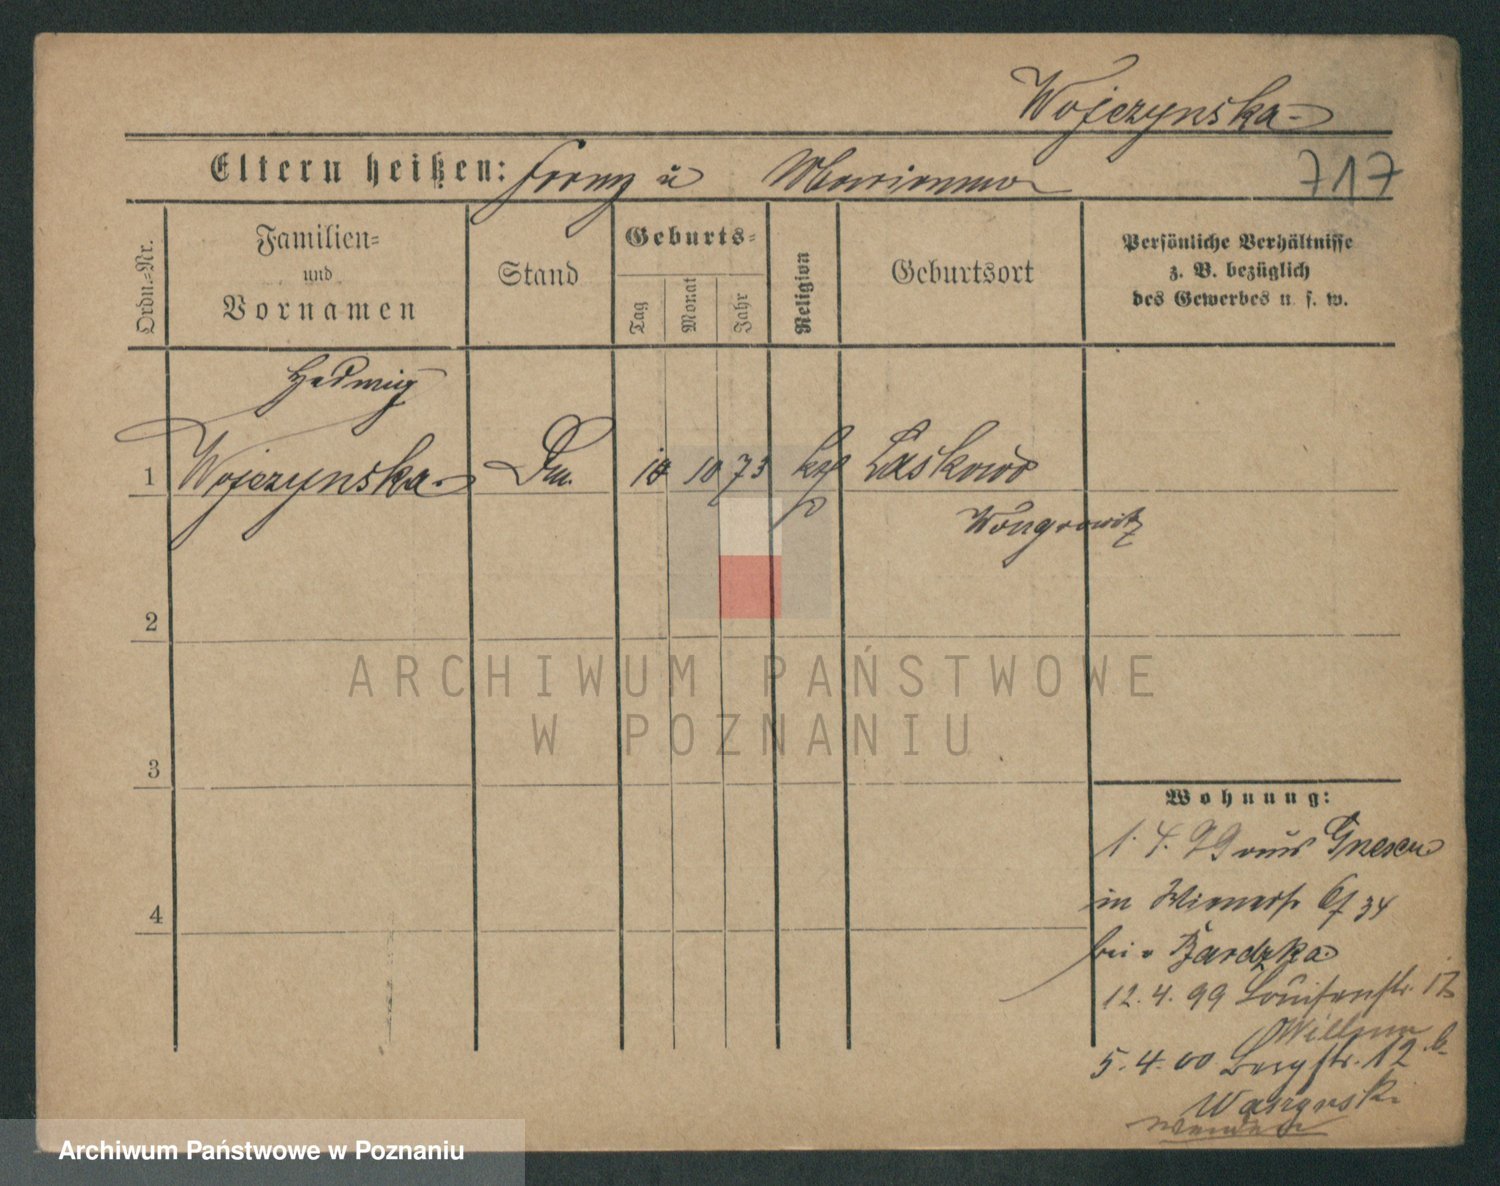 Wojczynska
Eltern heißen: Franz u Marianna
717
Ordn.=Nr.
Familien=
und
Vornamen
Stand
Geburts=
Tag
Monat
Jahr
Religion
Geburtsort
Persönliche Verhältnisse
z. B. bezüglich
des Gewerbes u. s. w.
Hedwig
1 Wojczynska 10 73 Laskowo
Wongrowitz
2
3
4
Wohnung:
1. 4. 99 aus Gnesen
in Wienerstr 34
bei Bardzka
12. 4. 99 Louisenstr. 12
5. 4. 00 Bergstr. 12 b
wenden
ARCHIWUM PAŃSTWOWE
W POZNANIU
Archiwum Państwowe w Poznaniu